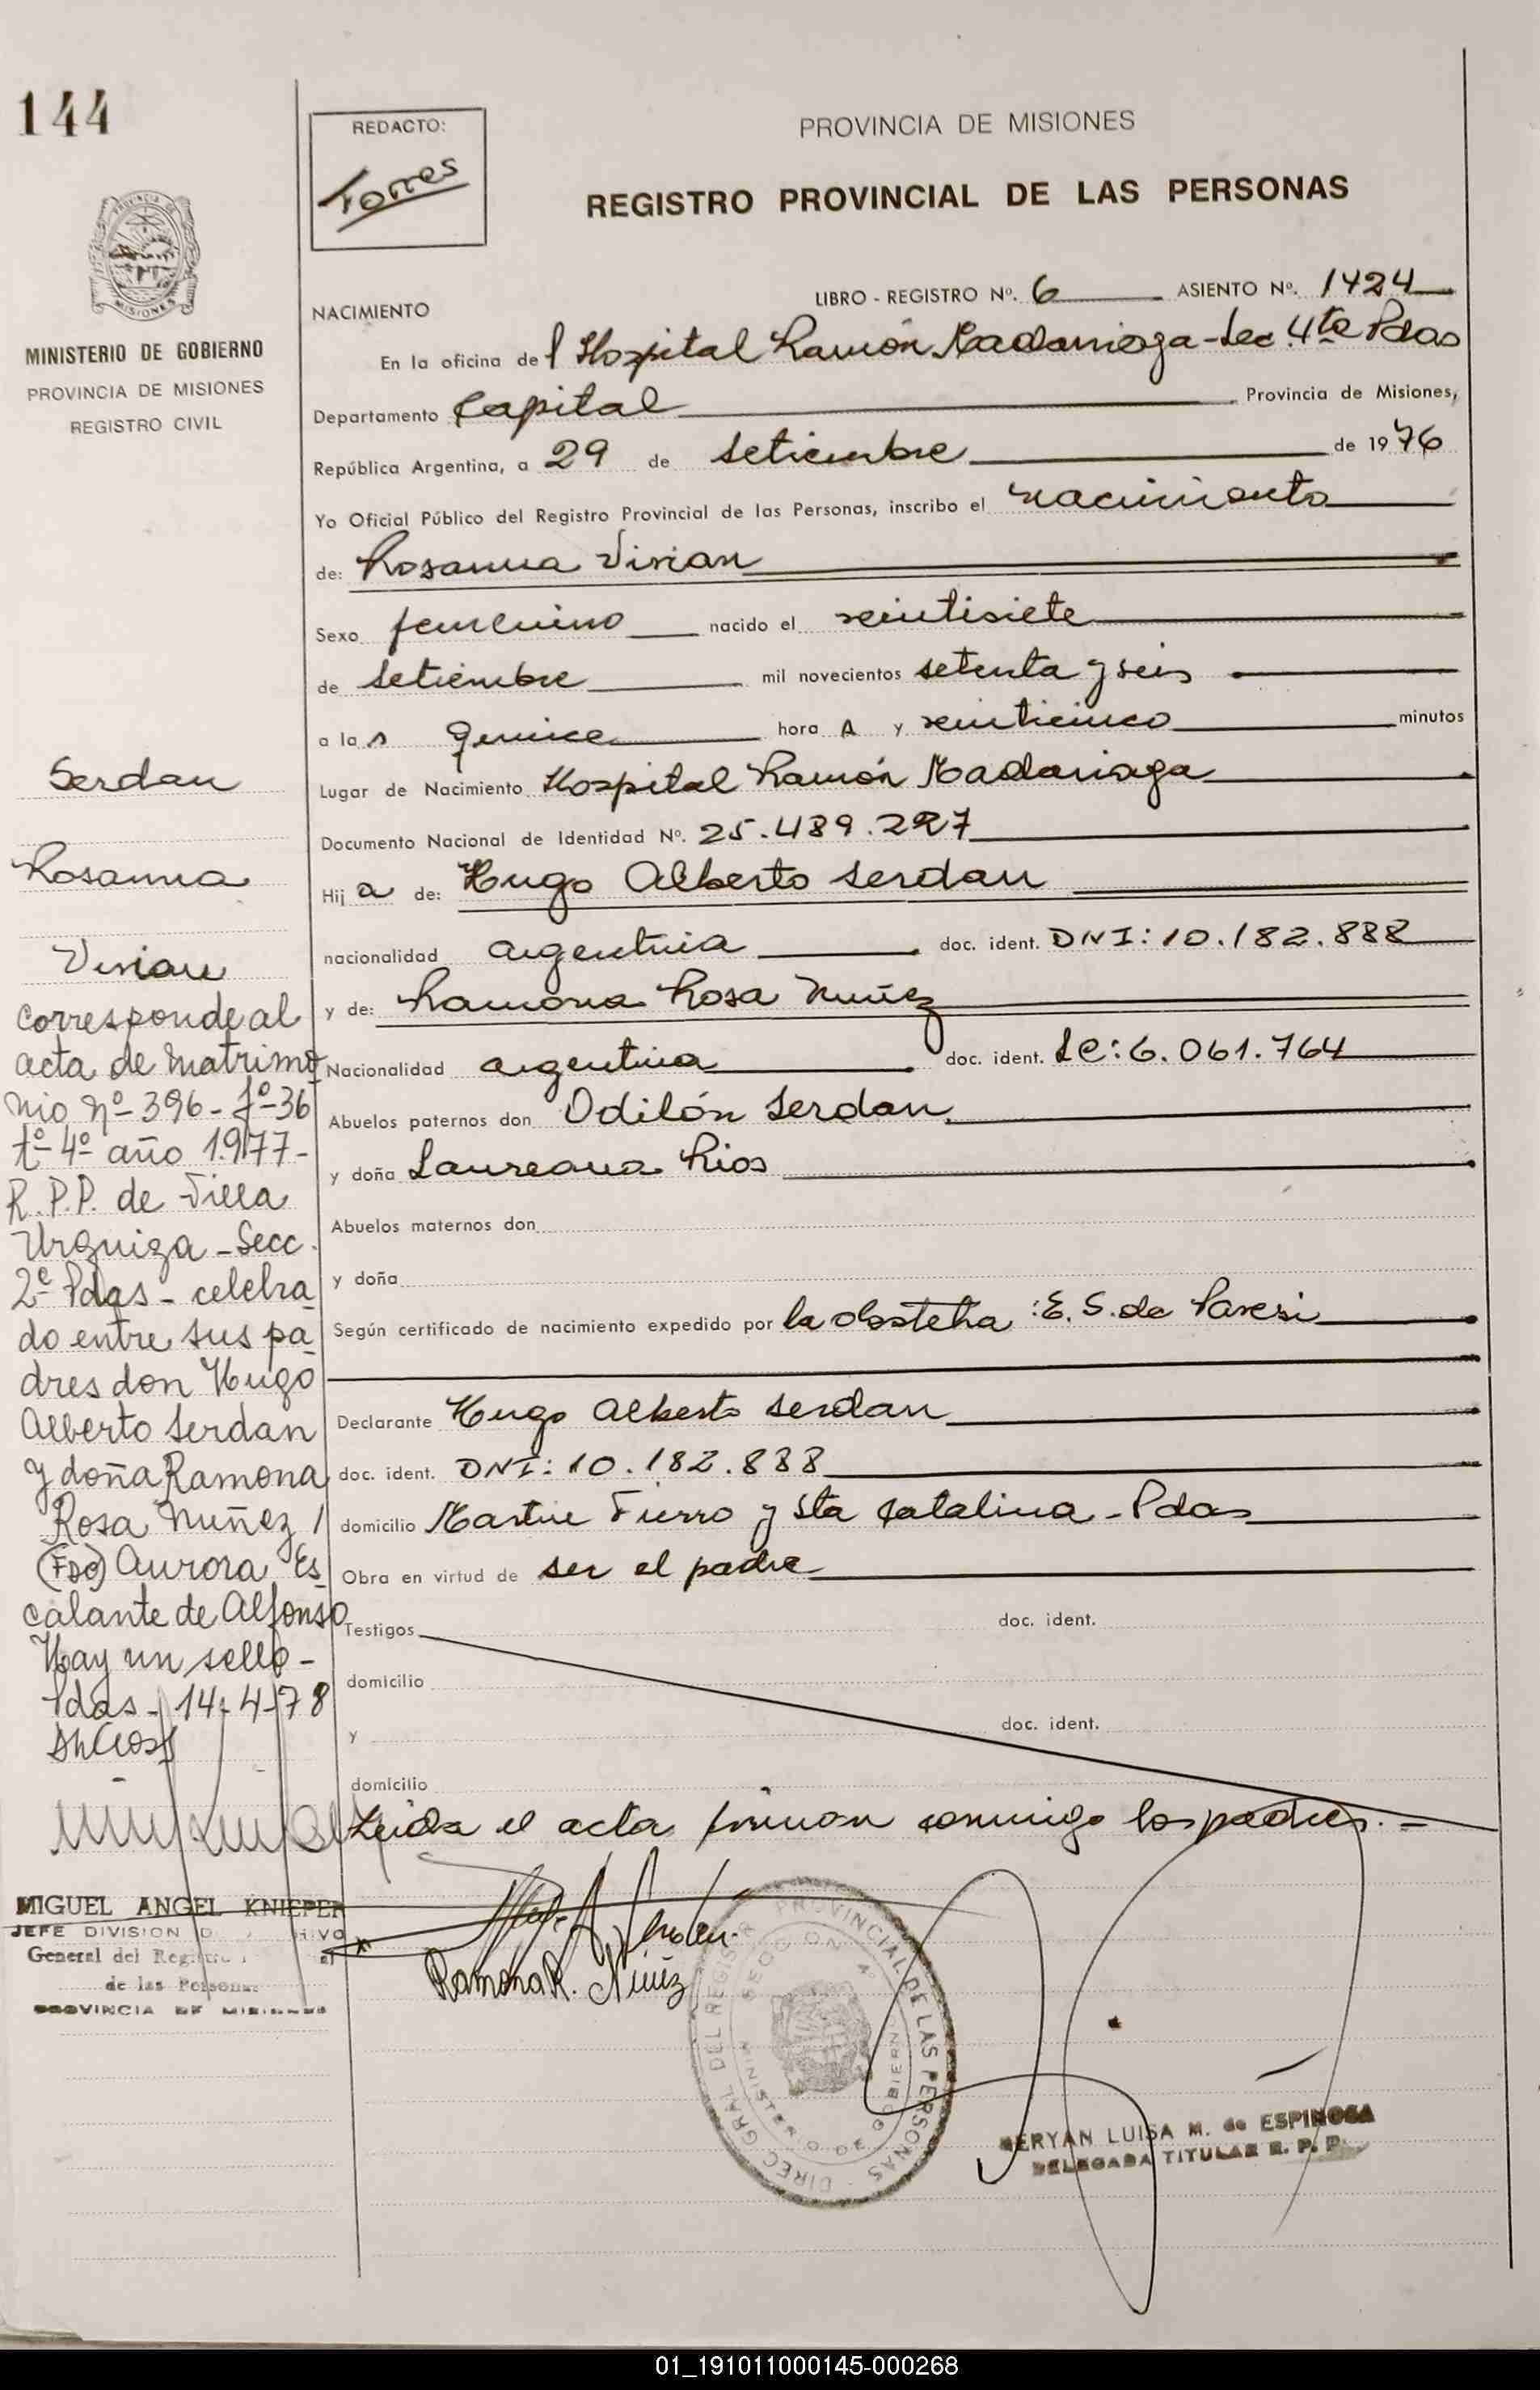 144
REDACTO:
Torres
PROVINCIA DE MISIONES
REGISTRO PROVINCIAL DE LAS PERSONAS
MINISTERIO DE GOBIERNO
PROVINCIA DE MISIONES
REGISTRO CIVIL
LIBRO - REGISTRO Nº. 6 ASIENTO Nº. 1424
NACIMIENTO
En la oficina del Hospital Ramón Madariaga - Sec. 4ta Pdas
Departamento Capital Provincia de Misiones,
República Argentina, a 29 de setiembre de 1976
Yo Oficial Público del Registro Provincial de las Personas, inscribo el nacimiento
de: Rosanna Vivian
Sexo femenino nacido el veintisiete
de setiembre mil novecientos setenta y seis
a las quince hora A y veinticinco minutos
Lugar de Nacimiento Hospital Ramón Madariaga
Documento Nacional de Identidad Nº. 25.489.227
Hija de: Hugo Alberto Serdan
nacionalidad argentina doc. ident. DNI: 10.182.888
y de: Ramona Rosa Nuñez
Nacionalidad argentina doc. ident. LC: 6.061.764
Abuelos paternos don Odilón Serdan
y doña Laureana Rios
Abuelos maternos don
y doña
Según certificado de nacimiento expedido por la obstetra : E. S. de Paresi
Declarante Hugo Alberto Serdan
doc. ident. DNI: 10.182.888
domicilio Martin Fierro y Sta Catalina - Pdas
Obra en virtud de ser el padre
Testigos doc. ident.
domicilio
y doc. ident.
domicilio
Leida el acta firman conmigo los padres. =
Serdan
Rosanna
Vivian
corresponde al
acta de matrimo
nio Nº 396 - fº 36
tº 4º año 1.977 -
R.P.P. de Villa
Urquiza - Secc.
2ª Pdas - celebra
do entre sus pa
dres don Hugo
Alberto Serdan
y doña Ramona
Rosa Nuñez /
(Fdo) Aurora Es
calante de Alfonso
Hay un sello -
Pdas - 14-4-78
MIGUEL ANGEL KNIEPER
JEFE DIVISION
General del
de las Personas
PROVINCIA DE MISIONES
Ramona R. Nuñez
DIREC. GRAL. DEL REGISTR. PROVINCIAL DE LAS PERSONAS
SECCION 4ª
MINISTERIO DE GOBIERNO
NERYAN LUISA M. de ESPINOSA
DELEGADA TITULAR R. P. P.
01_191011000145-000268